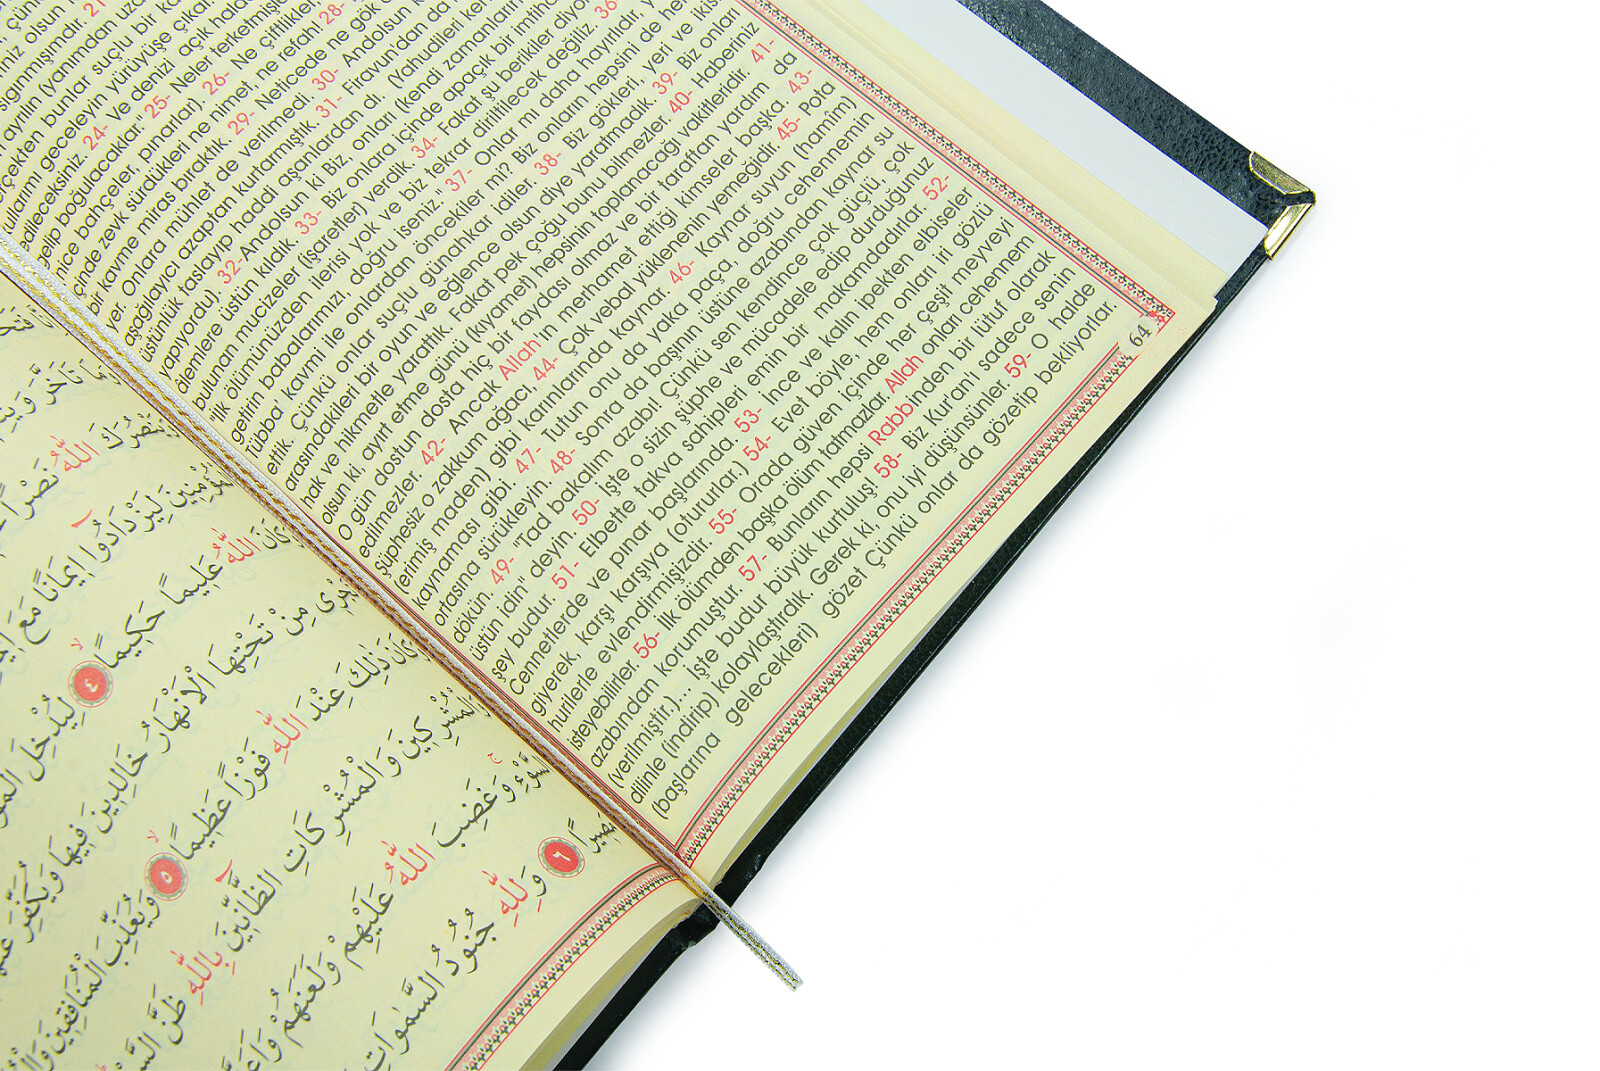 niz olsun
sığınmışımdır. 21
ayrılın (yanımdan uza
rçekten bunlar suçlu bir ka
ullarımı geceleyin yürüyüşe çıkar
dileceksiniz. 24- Ve denizi açık hald
gelip boğulacaklar. 25- Neler terketmişl
nice bahçeler, pınarlar). 26- Ne çiftlikler,
çinde zevk sürdükleri ne nimet ne refah! 28-
bir kavme miras bıraktık. 29- Neticede ne gök
yer. Onlara mühlet de verilmedi. 30- Andolsun
aşağılayıcı azaptan kurtarmıştık. 31- Firavun'dan da
üstünlük taslayıp haddi aşanlardan dı. (Yahudileri ken
yapıyordu). 32- Andolsun ki Biz, onları (kendi zamanların
alemlere üstün kıldık. 33- Biz onlara içinde apaçık bir imtihan
bulunan mucizeler (işaretler) verdik. 34- Fakat şu berikiler diyor
ilk ölümünüzden ilerisi yok ve biz tekrar diriltilecek değiliz. 36
getirin babalarımızı, doğru iseniz. 37- Onlar mı daha hayırlıdır, y
Tübba kavmi ile onlardan öncekiler mi? Biz onların hepsini de hel
ettik. Çünkü onlar suçlu günahkar idiler. 38- Biz gökleri, yeri ve ikisi
arasındakileri bir oyun ve eğlence olsun diye yaratmadık. 39- Biz onları
hak ve hikmetle yarattık. Fakat pek çoğu bunu bilmezler. 40- Haberiniz
olsun ki, ayırt etme günü (kıyamet) hepsinin toplanacağı vakitleridir. 41-
O gün dostun dosta hiç bir faydası olmaz ve bir taraftan yardım da
edilmezler. 42- Ancak Allah'ın merhamet ettiği kimseler başka. 43-
şüphesiz o zakkum ağacı, 44- Çok vebal yüklenenin yemeğidir. 45- Pota
(erimiş maden) gibi karınlarında kaynar. 46- Kaynar suyun (hamim)
kaynaması gibi. 47- Tutun onu da yaka paça, doğru cehennemin
ortasına sürükleyin. 48- Sonra da başının üstüne azabından kaynar su
dökün. 49- "Tad bakalım azabı! Çünkü sen kendince çok güçlü, çok
üstün idin" deyin. 50- İşte o sizin şüphe ve mücadele edip durduğunuz
şey budur. 51- Elbette takva sahipleri emin bir makamdadırlar. 52-
Cennetlerde ve pınar başlarında. 53- İnce ve kalın ipekten elbiseler
giyerek, karşı karşıya (otururlar.) 54- Evet böyle, hem onları iri gözlü
hurilerle evlendirmişizdir. 55- Orada güven içinde her çeşit meyveyi
isteyebilirler. 56- İlk ölümden başka ölüm tatmazlar. Allah onları cehennem
azabından korumuştur. 57- Bunların hepsi Rabbinden bir lütuf olarak
(verilmiştir.)... İşte budur büyük kurtuluş! 58- Biz Kur'an'ı sadece senin
dilinle (indirip) kolaylaştırdık. Gerek ki, onu iyi düşünsünler. 59- O halde
(başlarına gelecekleri) gözet Çünkü onlar da gözetip bekliyorlar.
64
تَاَخَّرَ
اللّٰهُ نَصْرًا
لِيَزْدَادُٓوا ا۪يمَانًا مَعَ
اللّٰهُ عَل۪يمًا حَك۪يمًا ٤ لِيُدْخِلَ
مِنْ تَحْتِهَا الْاَنْهَارُ خَالِد۪ينَ ف۪يهَا وَيُكَفِّرَ
ذٰلِكَ عِنْدَ اللّٰهِ فَوْزًا عَظ۪يمًا ٥ وَيُعَذِّبَ الْمُنَافِق۪ينَ
وَالْمُشْرِكَاتِ الظَّٓانّ۪ينَ بِاللّٰهِ ظَنَّ
وَغَضِبَ اللّٰهُ عَلَيْهِمْ وَلَعَنَهُمْ
٦ وَلِلّٰهِ جُنُودُ السَّمٰوَاتِ